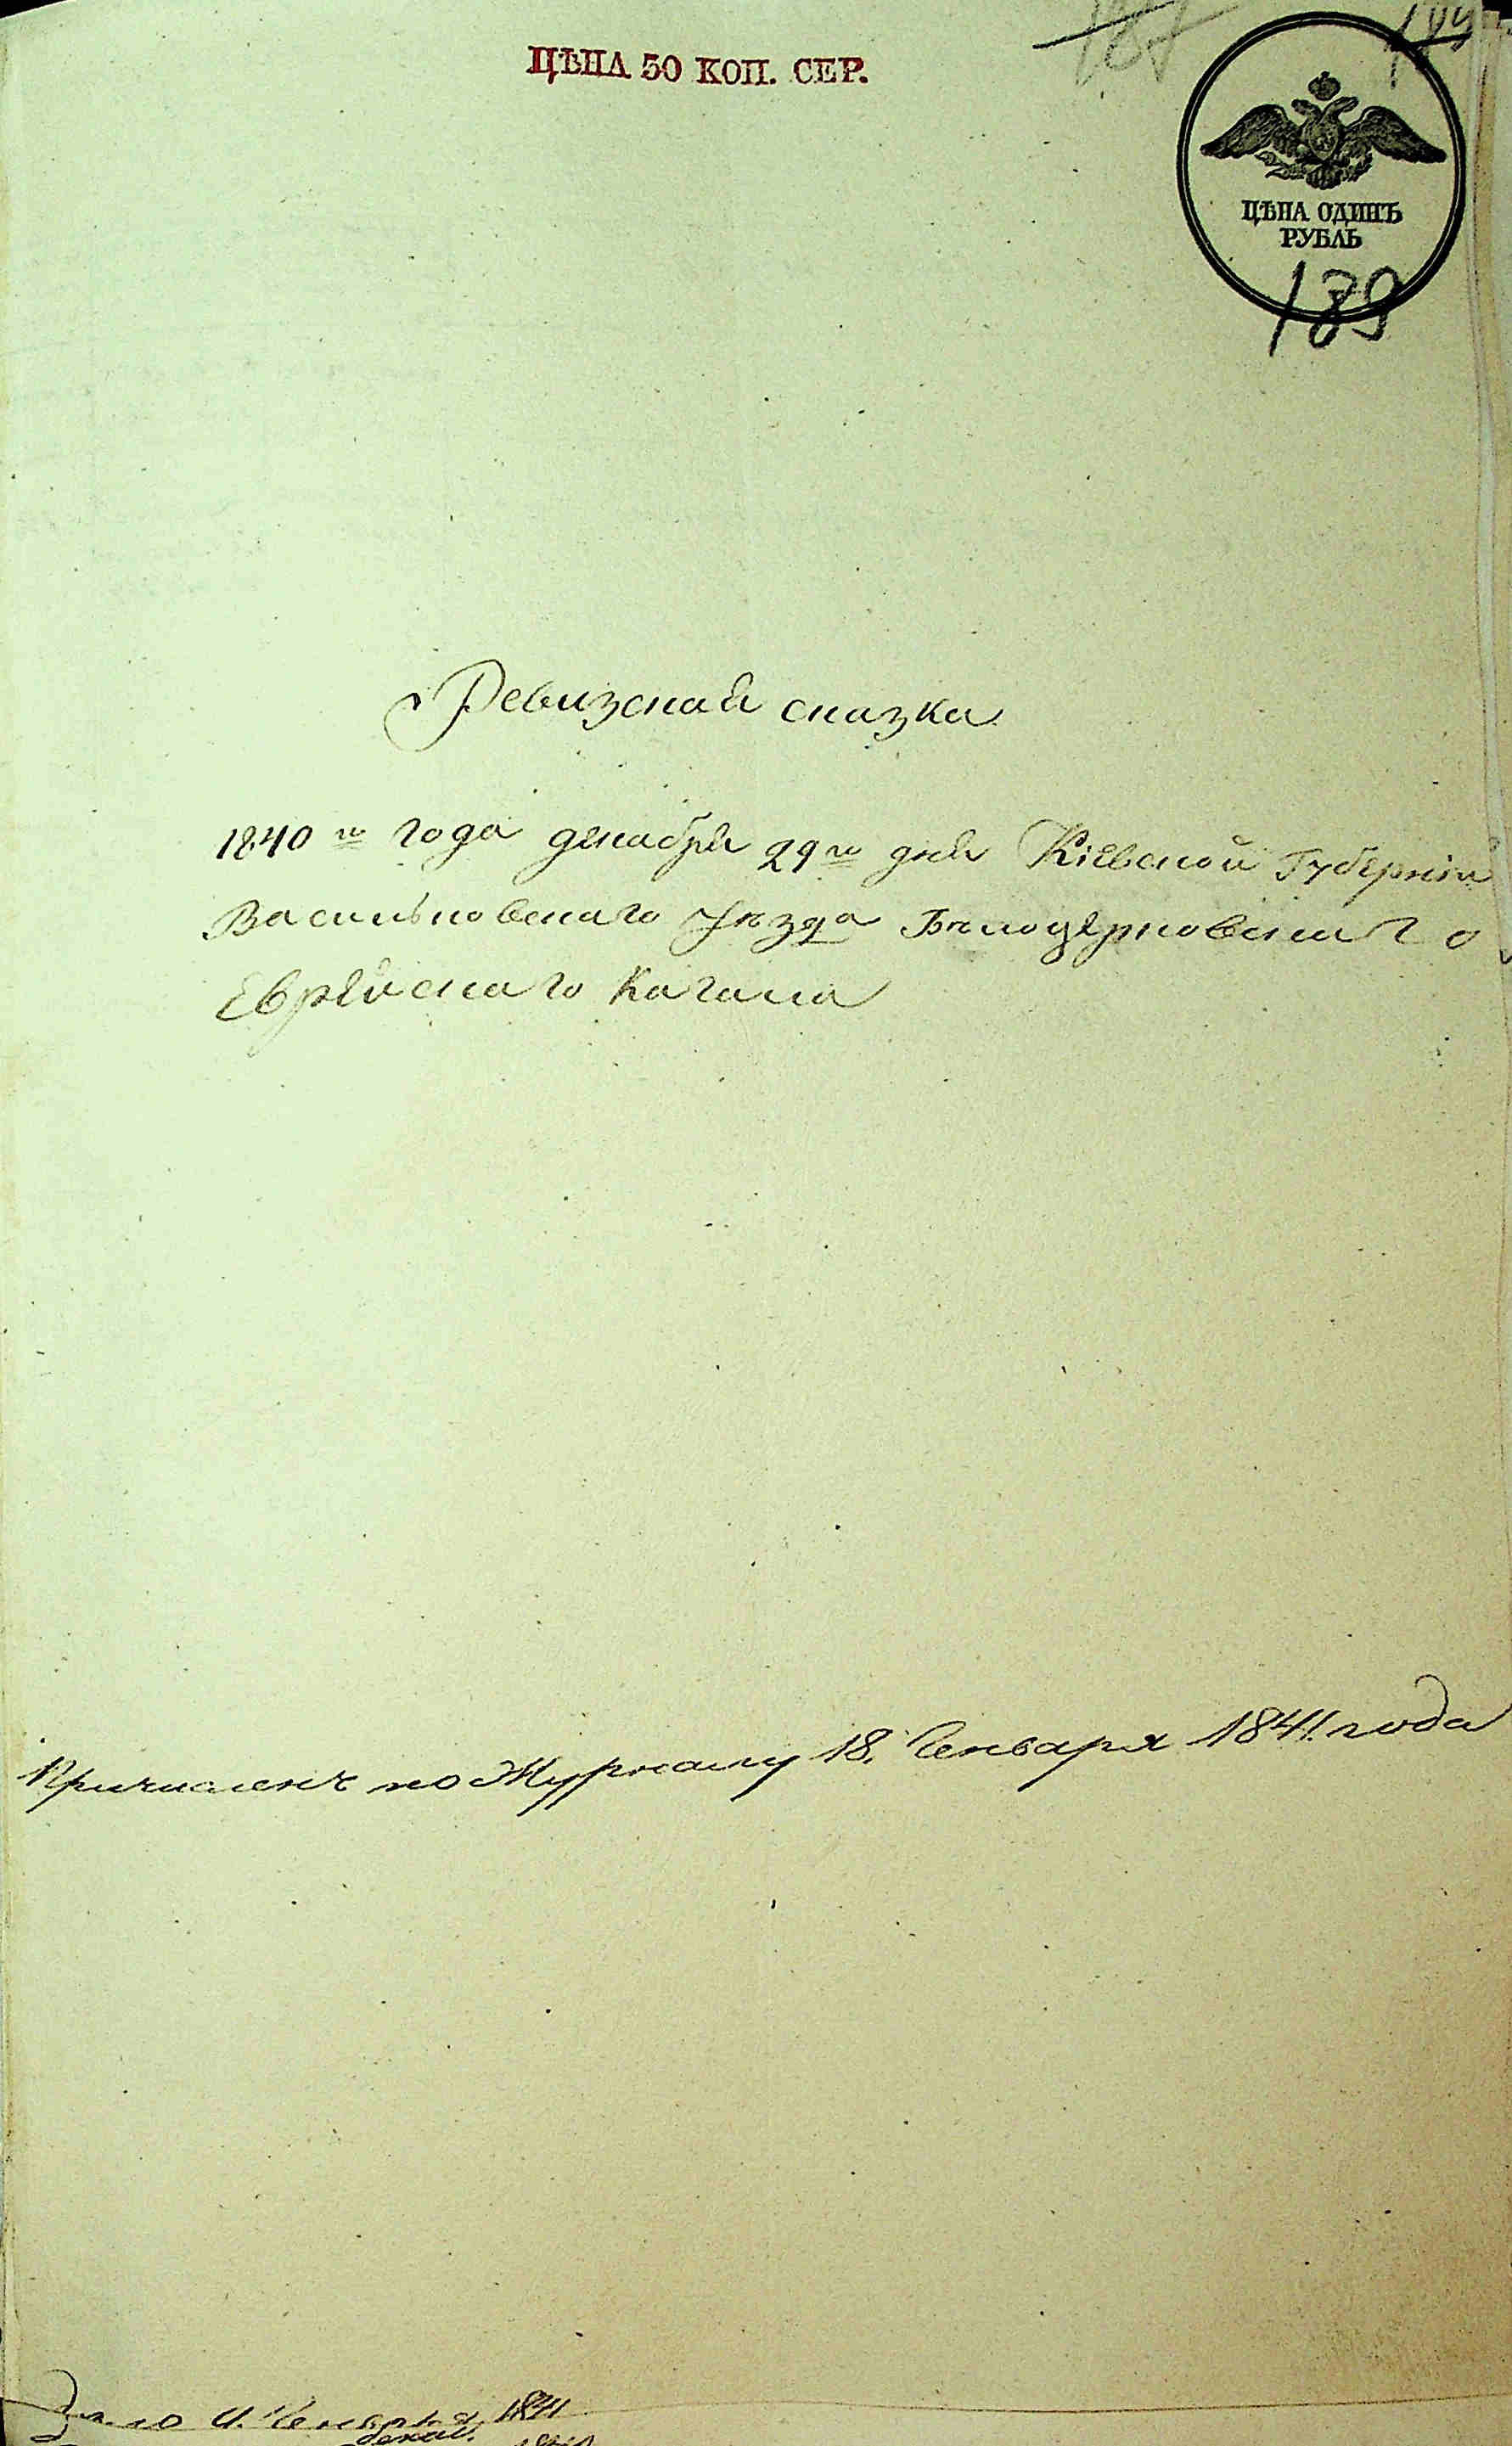 ЦѢНА 50 КОП. СЕР.
187
ЦѢНА ОДИНЪ
РУБЛЬ
189
Ревизская сказка
1840го года декабря 29го дня Кіевской Губерніи
Васильковскаго Уѣзда Бѣлоцерковскаго
Еврейскаго Кагала
Причисленъ по Журналу 18. Генваря 1841. года
Генваря 1841